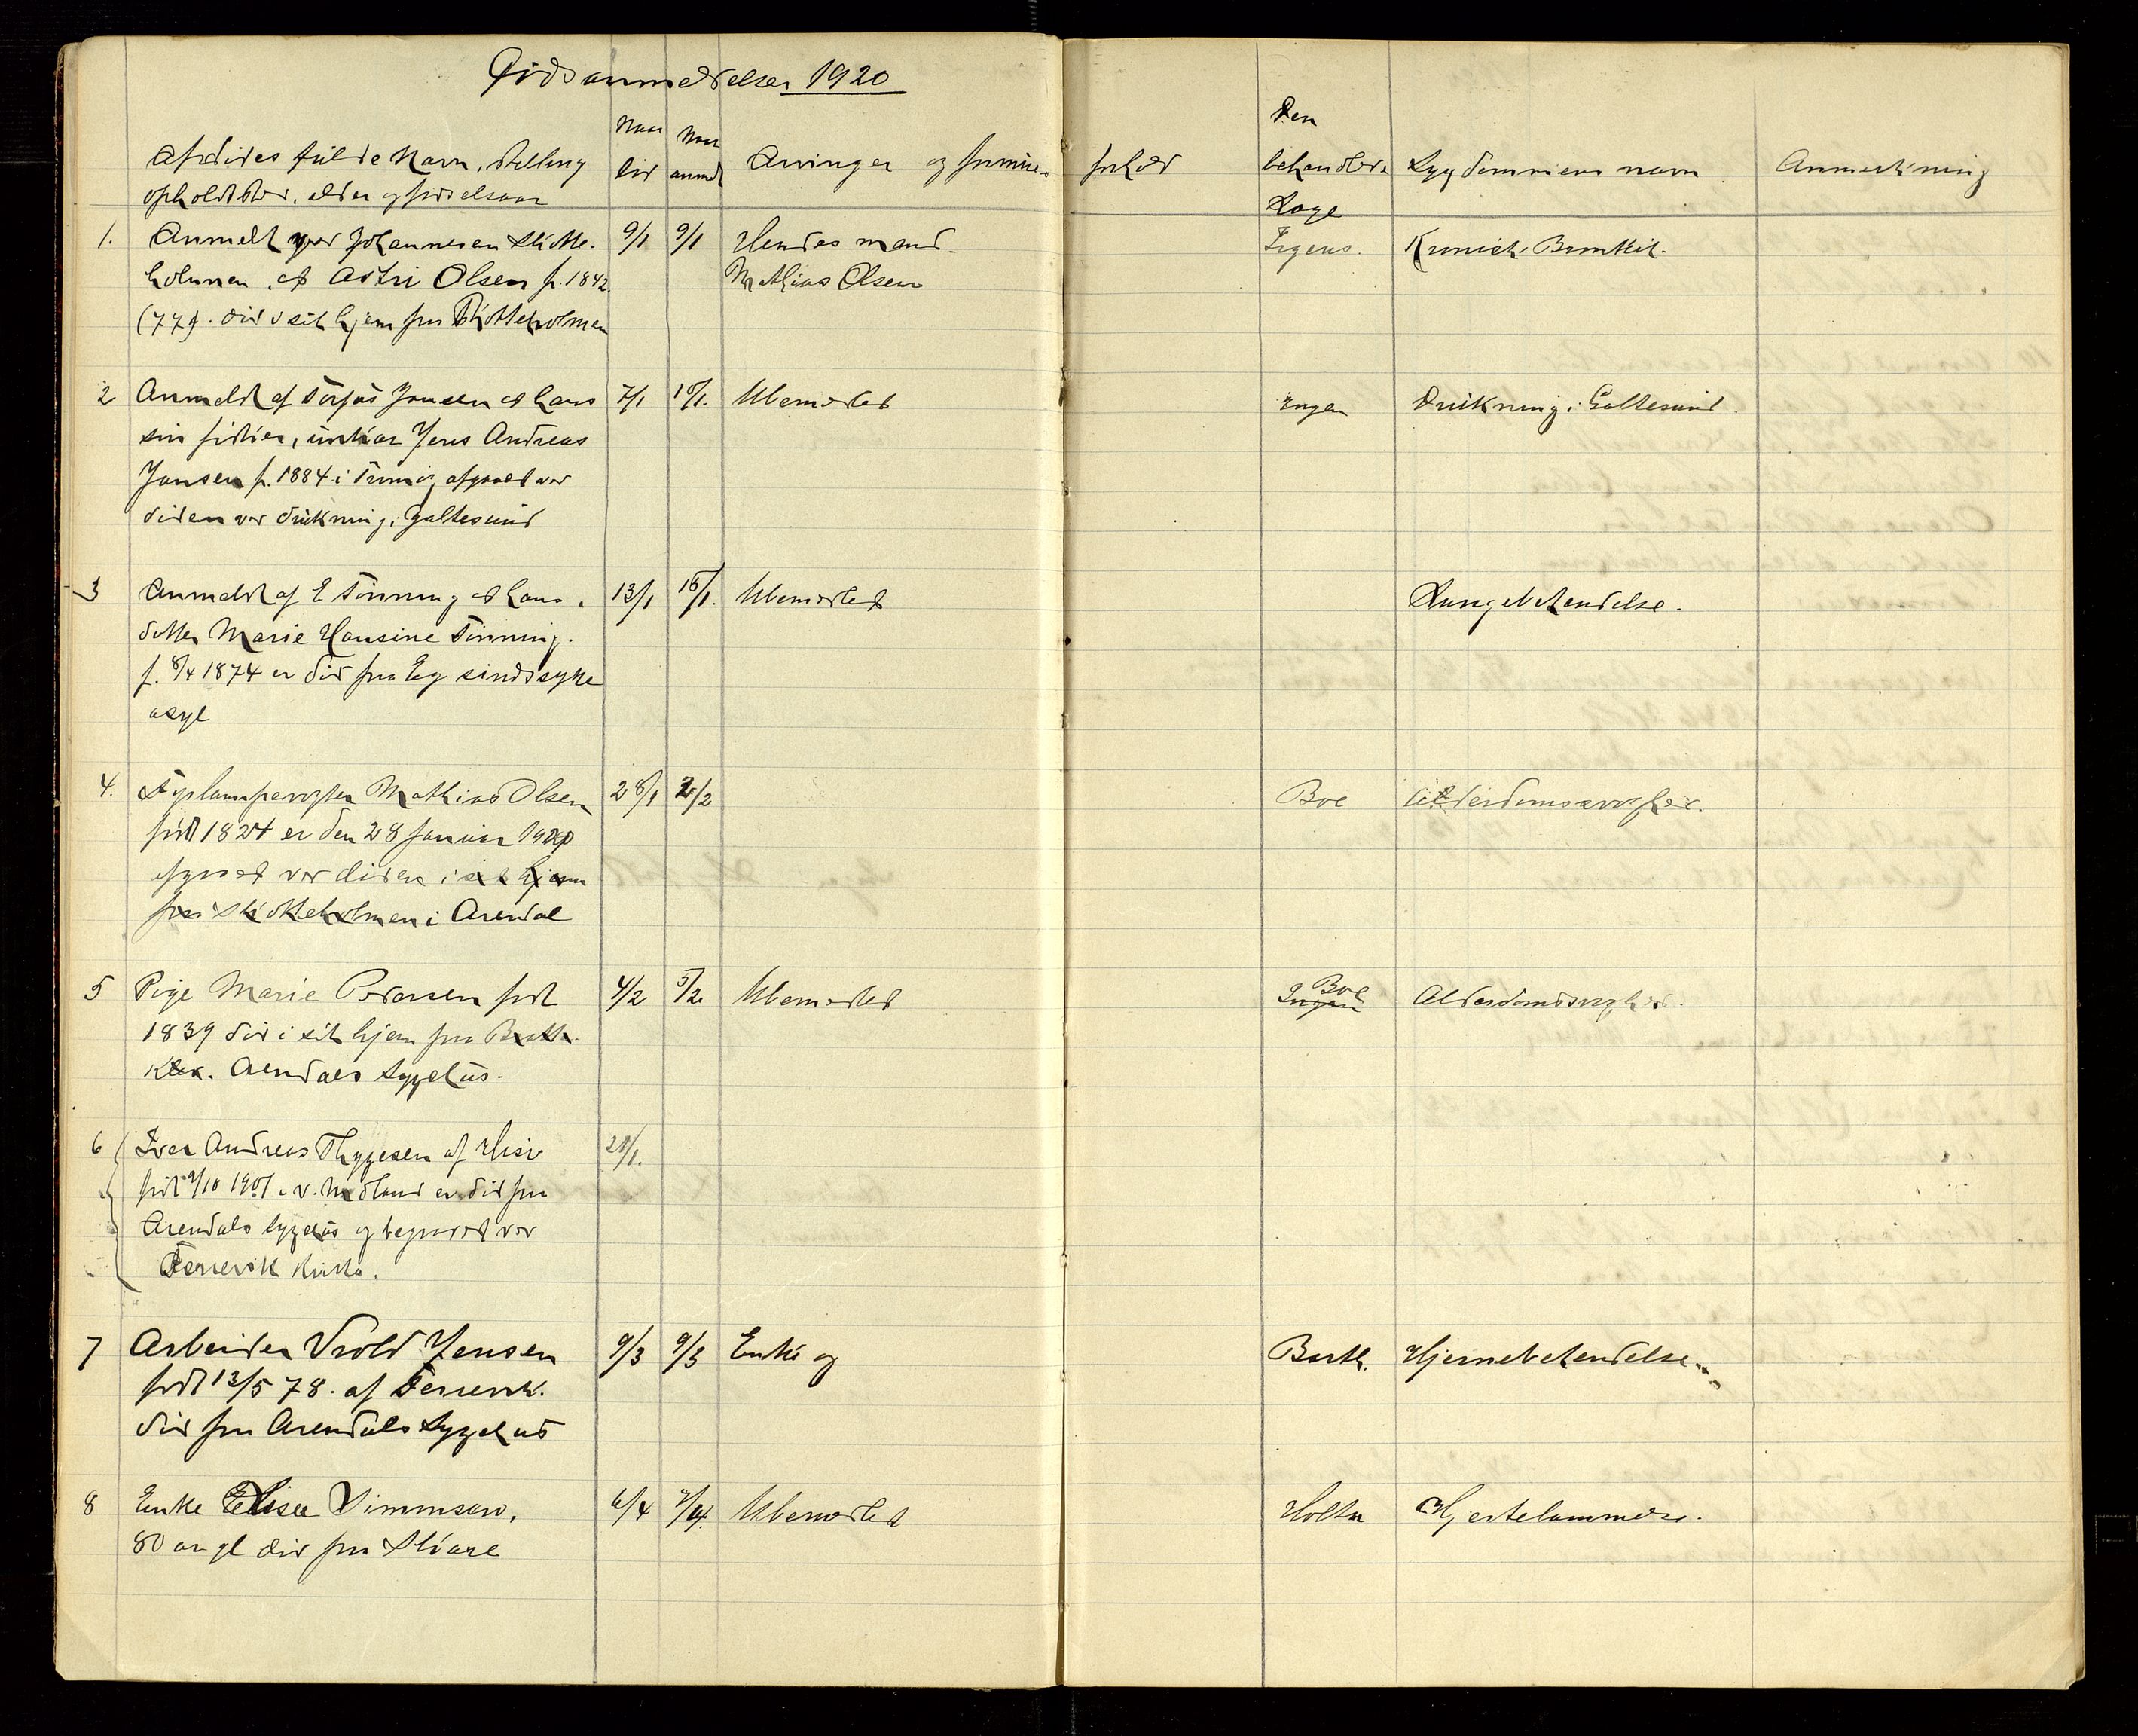 Dødsanmeldelser 1920
Afdødes fulde Navn, stilling
opholdsted, alder og fødselsaar
Naar
død
Naar
anmeldt
Arvinger og formues
forhold
Den
behandlende
Læge
Sygdommens navn
Anmerkning
1. Anmeldt ved Johannesen Skotte-
holmen, at Astri Olsen f. 1842.
(77). død i sit hjem paa Skotteholmen
9/1 9/1 Hendes mand.
Mathias Olsen
Irgens. Kronisk Bronkit.
2 Anmeldt af Jansen at hans
søn fisker, ungkar Jens Andreas
Jansen f. 1884 i Tromø, afgaaet ved
døden ved drukning i Galtesund
7/1 10/1. Ubemidlet
Ingen Drukning i Galtesund.
3 Anmeldt af E Tønning at hans
datter Marie Hansine Tønning.
f. 8/4 1874 er død paa Eg sindssyke
asyl
13/1 15/1. Ubemidlet
Lungebetendelse.
4. Fyrlampevogter Mathias Olsen
født 1824 er den 28 januar 1920
afgaaet ved døden i sit hjem
paa Skotteholmen i Arendal
28/1 2/2
Boe Alderdomssvaghed.
5 Pige Marie Pedersen født
1839 død i sit hjem paa
Arendals Sygehus.
4/2 5/2 Ubemidlet
Boe
Ingen Alderdomssvaghed.
6 Iver Andreas Thygesen af Hisø
født 9/10 1901 er død paa
Arendals sygehus og begravet ved
Færvik Kirke.
28/1.
7 Arbeider Vrold Jensen
født 13/5 78. af Færvik.
død paa Arendals Sygehus
9/3 9/3 Enke og
Barth. Hjernebetendelse
8 Enke Elise Simonsen,
80 aar gl død paa Skaare
6/4 7/4. Ubemidlet
Holter Hjertelammelse.